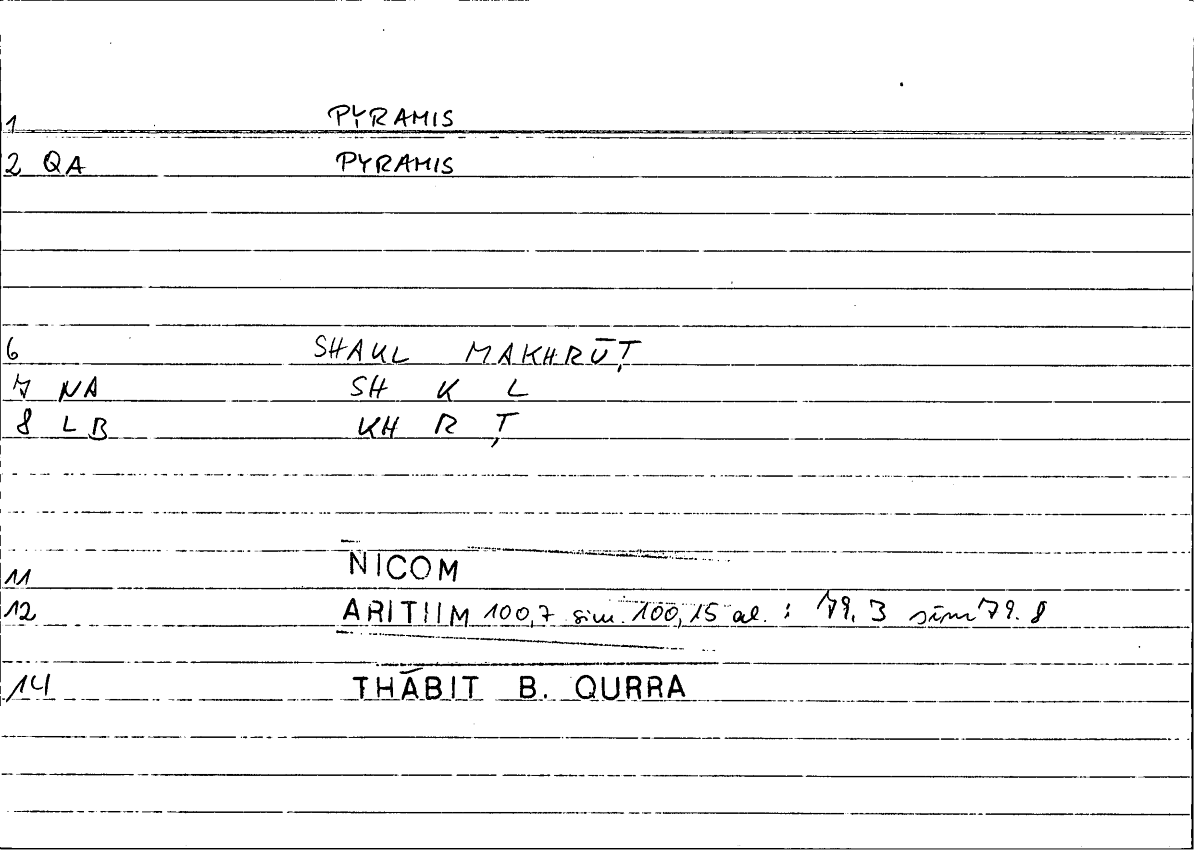 1 PYRAMIS
2 QA PYRAMIS
6 SHAKL MAKHRŪṬ
7 NA SH K L
8 LB KH R Ṭ
11 NICOM
12 ARITIIM 100,7 sim. 100,15 al. : 79. 3 sim 79. 8
14 THĀBIT B. QURRA